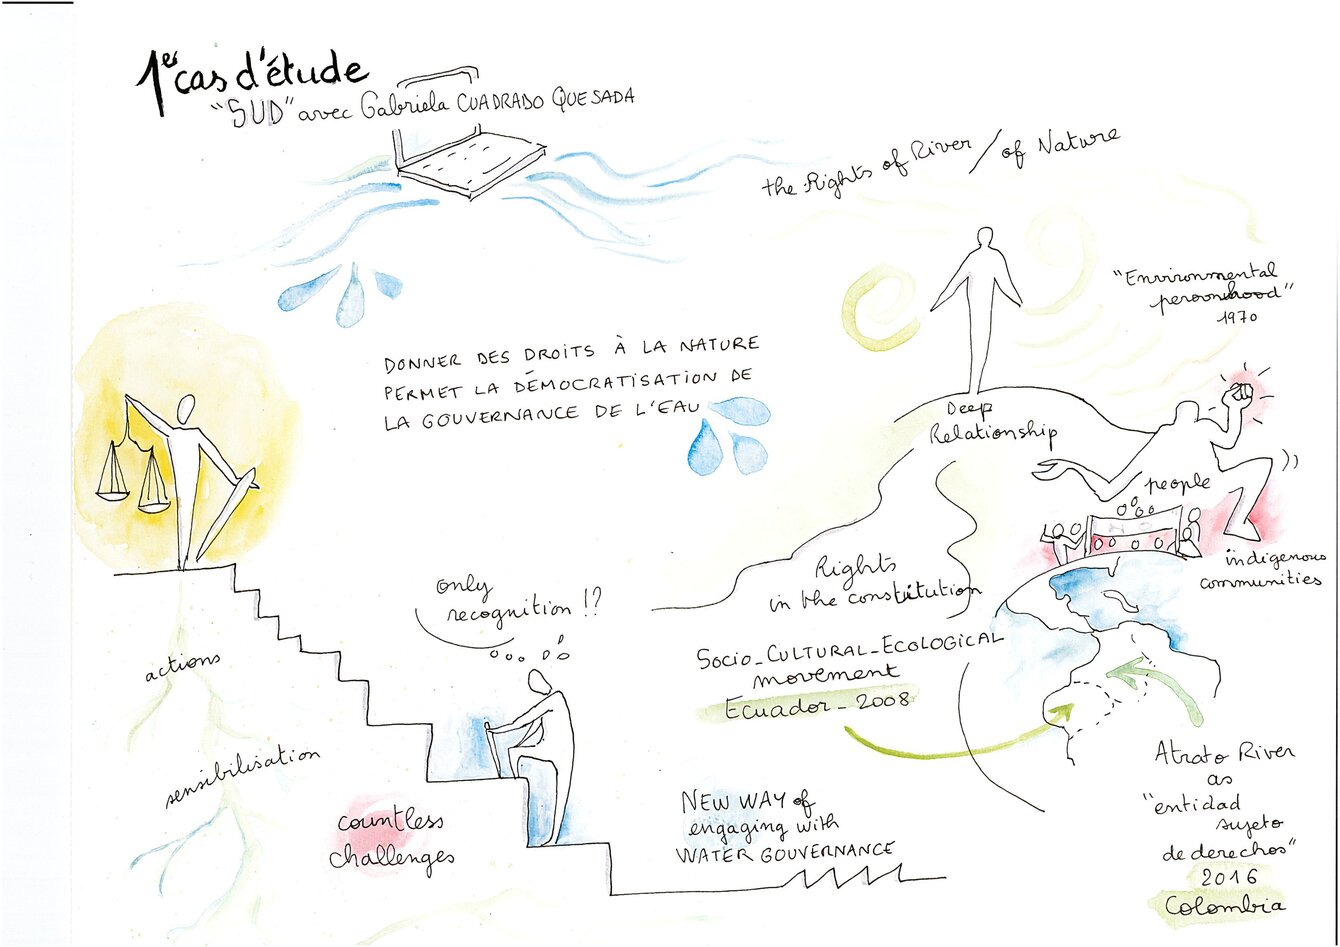 1er cas d'étude
"SUD" avec Gabriela CUADRADO QUESADA
the Rights of River / of Nature
"Environmental
personhood"
1970
DONNER DES DROITS À LA NATURE
PERMET LA DÉMOCRATISATION DE
LA GOUVERNANCE DE L'EAU
Deep
Relationship
people
indigenous
communities
Rights
in the constitution
only
recognition !?
SOCIO_CULTURAL_ECOLOGICAL
movement
Ecuador_2008
actions
sensibilisation
countless
challenges
NEW WAY of
engaging with
WATER GOUVERNANCE
Atrato River
as
"entidad
sujeto
de derechos"
2016
Colombia